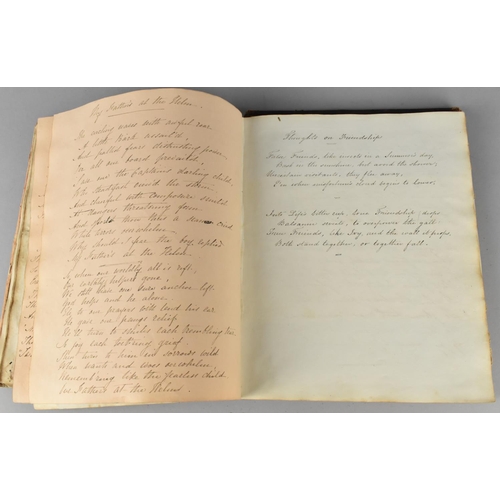 My Father's at the Helm
The
waves with awful roar
A little bark assail'd,
And pallid fears distracting power
O'er all on board prevail'd,
Save one the Captain's darling child
Who
view'd the storm
And cheerful with composure smiled
At
threatening form
And
thou
a
cried
While
overwhelm
Why should I fear the boy replied
My Father's at the Helm.
when our worldly all is reft,
Our earthly helpers gone,
We still have one sure anchor left
God helps and he alone
He to our prayers will lend his ear
He gives our pangs relief
He'll turn to smiles each trembling tear
To joy each torturing grief
Then turn to him
sorrows wild
When wants and woes o'erwhelm
Remembering like the fearless child
Our Father's at the Helm.
Thoughts on Friendship
False Friends, like insects in a Summer's day,
Bask in the sunshine but avoid the shower,
Uncertain visitants, they flee away,
E'en when misfortune's cloud begins to lower,
Into Life's bitter cup, true Friendship drops
Balsamic sweets, to overpower the gall.
True Friends, like Ivy, and the wall it props,
Both stand together, or together fall.